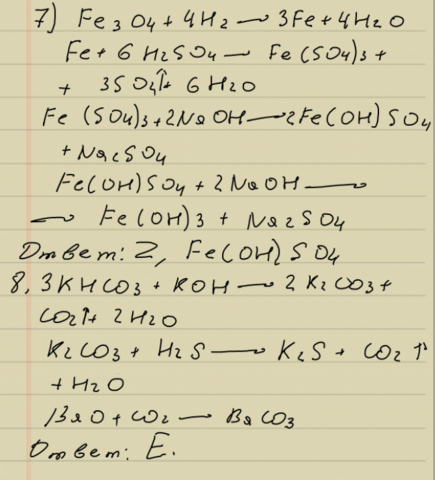 7) Fe3O4 + 4H2 → 3Fe + 4H2O
Fe + 6 H2SO4 → Fe (SO4)3 +
+ 3SO2↑ + 6 H2O
Fe (SO4)3 + 2NaOH → 2Fe(OH) SO4
+ Na2SO4
Fe(OH)SO4 + 2 NaOH →
→ Fe(OH)3 + Na2SO4
Ответ: Z, Fe(OH) SO4
8, 3KHCO3 + KOH → 2 K2CO3 +
CO2↑ + 2H2O
K2CO3 + H2S → K2S + CO2 ↑
+ H2O
BaO + CO2 → BaCO3
Ответ: E.